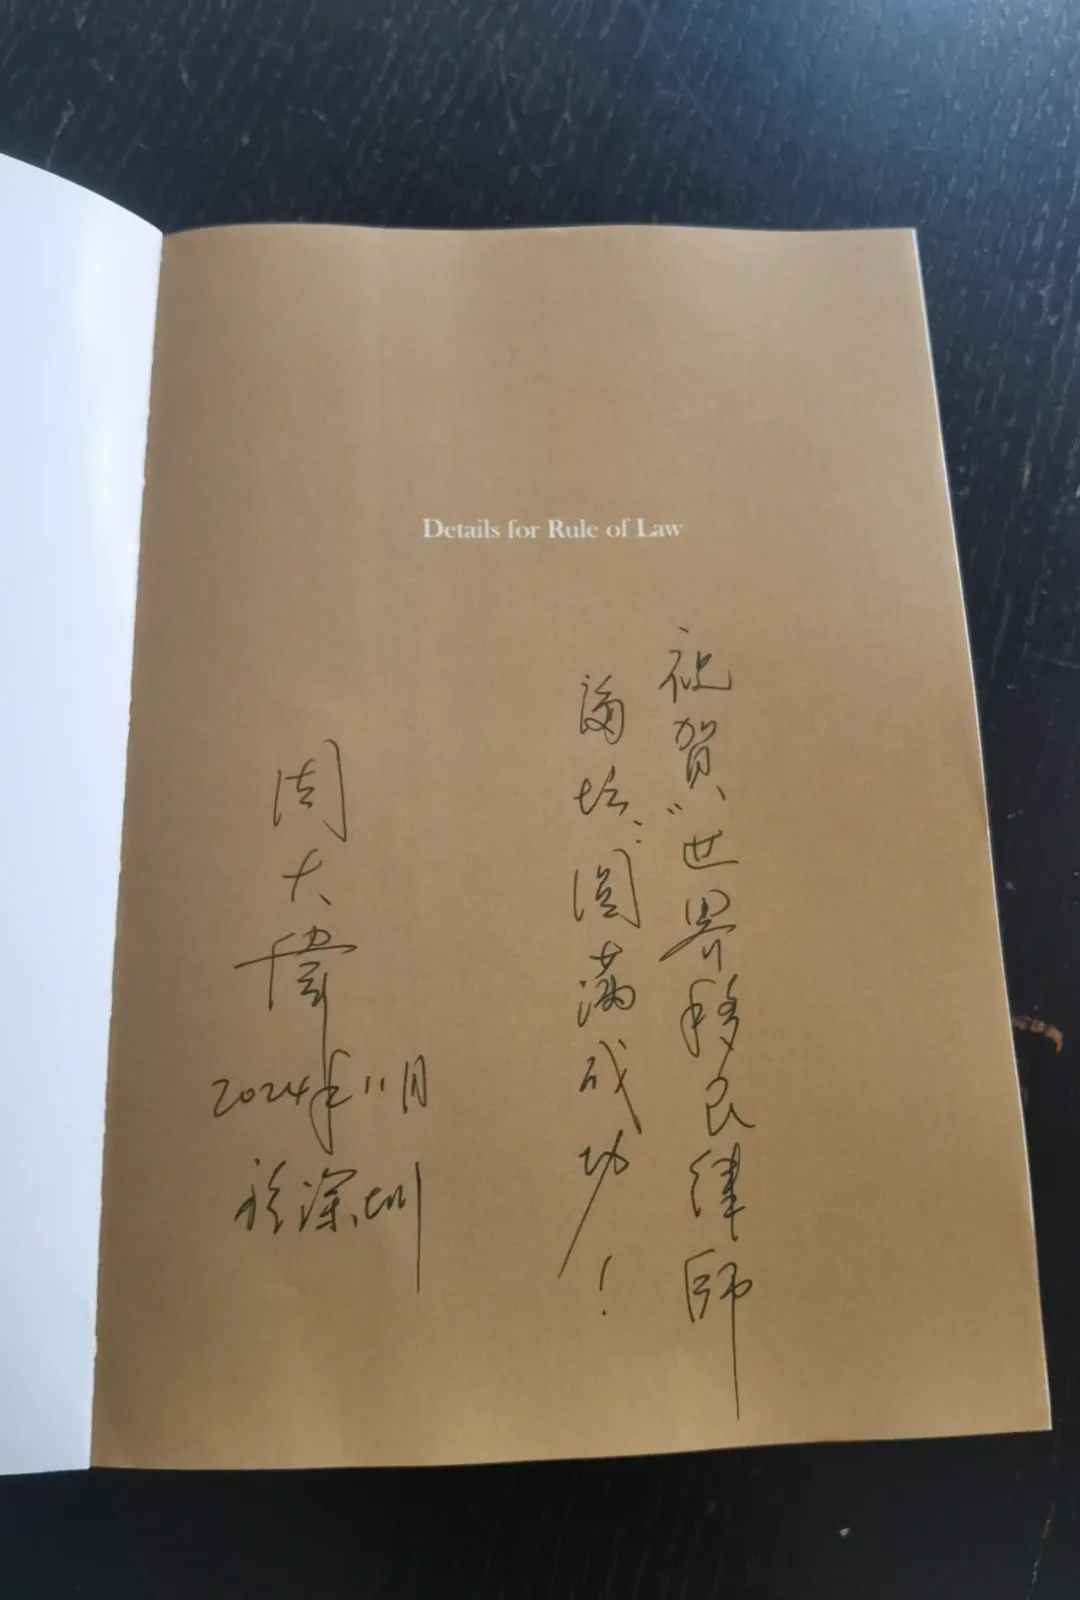 Details for Rule of Law
祝賀“世界移民律師
論坛”圓满成功！
周大偉
2024年11月
於深圳